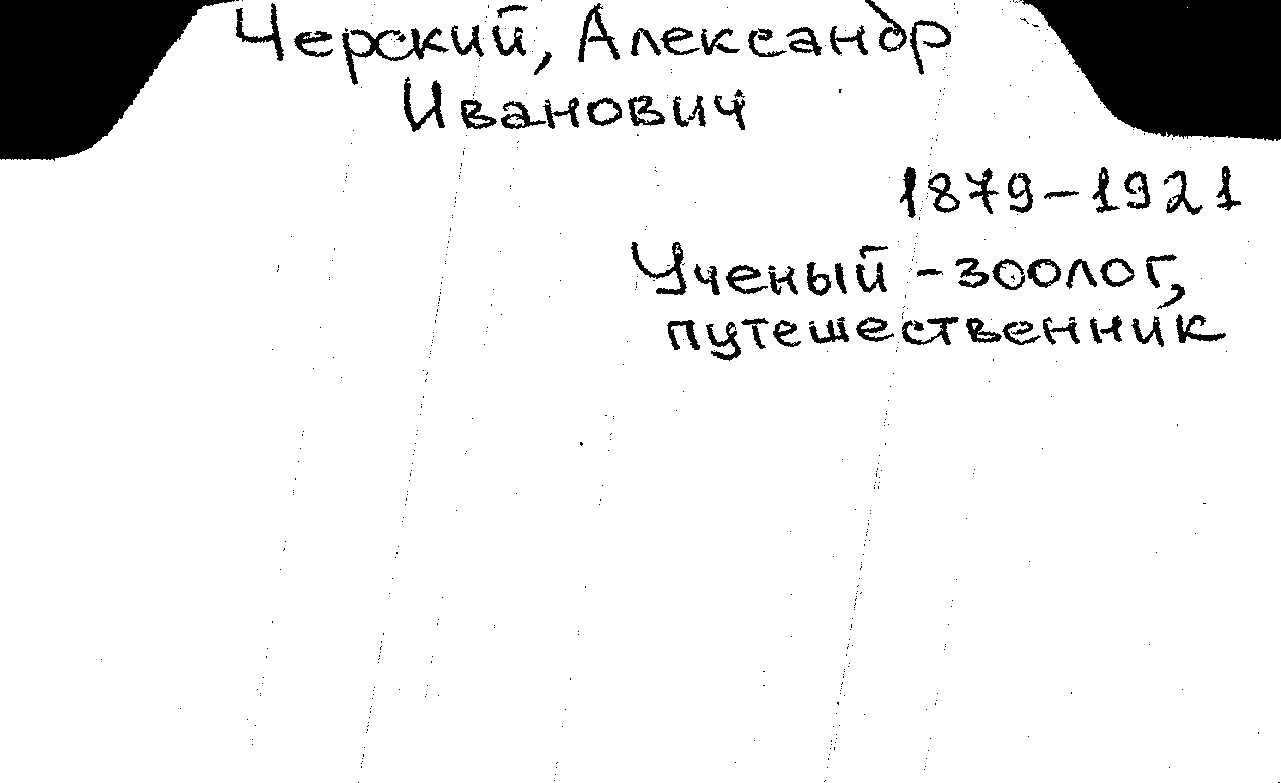 Черский, Александр
Иванович
1879-1921
Ученый - зоолог,
путешественник